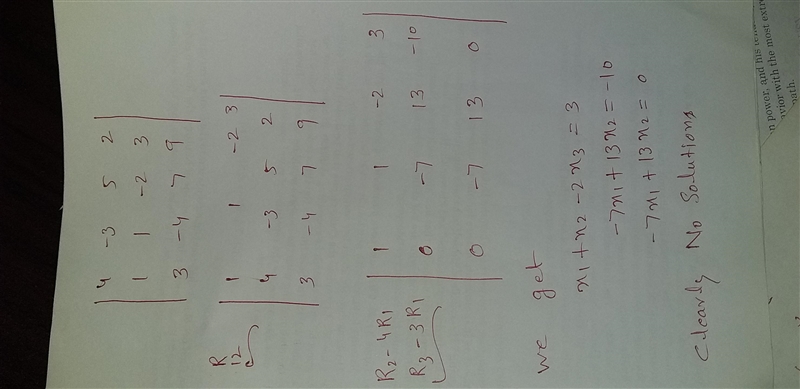 4 -3 5 2
1 1 -2 3
3 -4 7 9
R12
1 1 -2 3
4 -3 5 2
3 -4 7 9
R2-4R1
R3-3R1
1 1 -2 3
0 -7 13 -10
0 -7 13 0
we get
x1+x2-2x3=3
-7x1+13x2=-10
-7x1+13x2=0
Clearly No Solutions.
n power, and his
vior with the most extre
math.